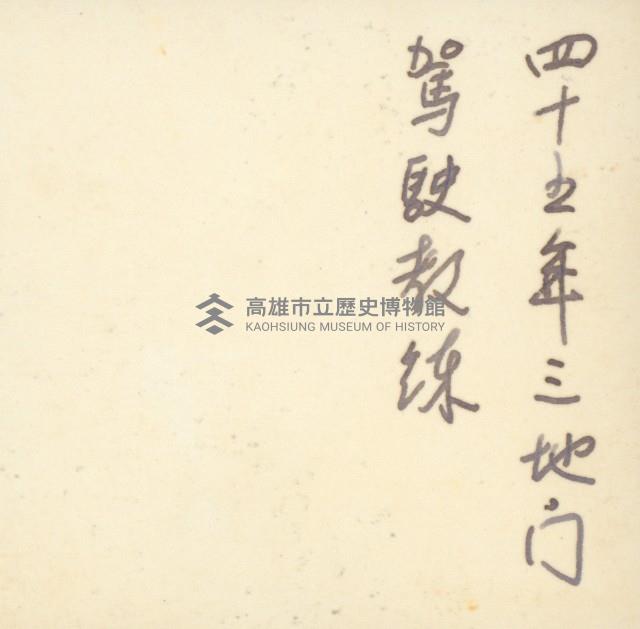 四十五年三地门
駕駛教練
高雄市立歷史博物館
KAOHSIUNG MUSEUM OF HISTORY